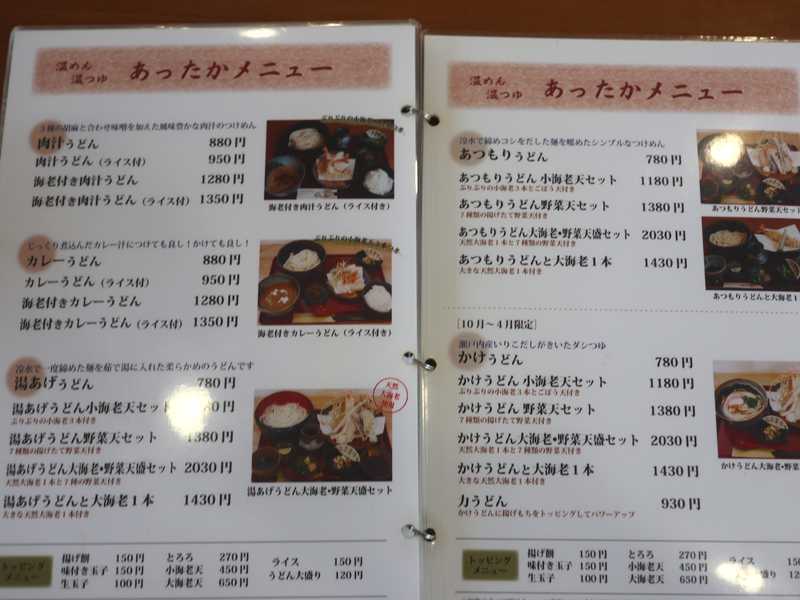 温めん
温つゆ
あったかメニュー
3種の胡麻と合わせ味噌を加えた風味豊かな肉汁のつけめん
肉汁うどん 880円
肉汁うどん（ライス付） 950円
海老付き肉汁うどん 1280円
海老付き肉汁うどん（ライス付） 1350円
海老付き肉汁うどん（ライス付き）
じっくり煮込んだカレー汁につけても良し！かけても良し！
カレーうどん 880円
カレーうどん（ライス付） 950円
海老付きカレーうどん 1280円
海老付きカレーうどん（ライス付） 1350円
海老付きカレーうどん（ライス付き）
冷水で一度締めた麺を茹で湯に入れた柔らかめのうどんです
湯あげうどん 780円
湯あげうどん小海老天セット
ぷりぷりの小海老3本付き
湯あげうどん野菜天セット 1380円
7種類の揚げたて野菜天付き
湯あげうどん大海老・野菜天盛セット 2030円
天然大海老1本と7種の野菜天付き
湯あげうどんと大海老1本 1430円
大きな天然大海老1本付き
天然
大海老
使用
湯あげうどん大海老・野菜天盛セット
トッピング
メニュー
揚げ餅 150円 とろろ 270円 ライス 150円
味付き玉子 150円 小海老天 450円 うどん大盛り 120円
生玉子 100円 大海老天 650円
温めん
温つゆ
あったかメニュー
冷水で締めコシをだした麺を暖めたシンプルなつけめん
あつもりうどん 780円
あつもりうどん 小海老天セット 1180円
ぷりぷりの小海老3本とごぼう天付き
あつもりうどん 野菜天セット 1380円
7種類の揚げたて野菜天付き
あつもりうどん大海老・野菜天盛セット 2030円
天然大海老1本と7種類の野菜天付き
あつもりうどんと大海老1本 1430円
大きな天然大海老1本付き
あつもりうどん野菜天セット
あつもりうどんと大海老1
［10月～4月限定］
瀬戸内産いりこだしがきいたダシつゆ
かけうどん 780円
かけうどん 小海老天セット 1180円
ぷりぷりの小海老3本とごぼう天付き
かけうどん 野菜天セット 1380円
7種類の揚げたて野菜天付き
かけうどん大海老・野菜天盛セット 2030円
天然大海老1本と7種類の野菜天付き
かけうどんと大海老1本 1430円
大きな天然大海老1本付き
力うどん 930円
かけうどんに揚げもちをトッピングしてパワーアップ
かけうどん大海老・野菜
トッピング
メニュー
揚げ餅 150円 とろろ 270円 ライス 150
味付き玉子 150円 小海老天 450円 うどん大盛り 12
生玉子 100円 大海老天 650円